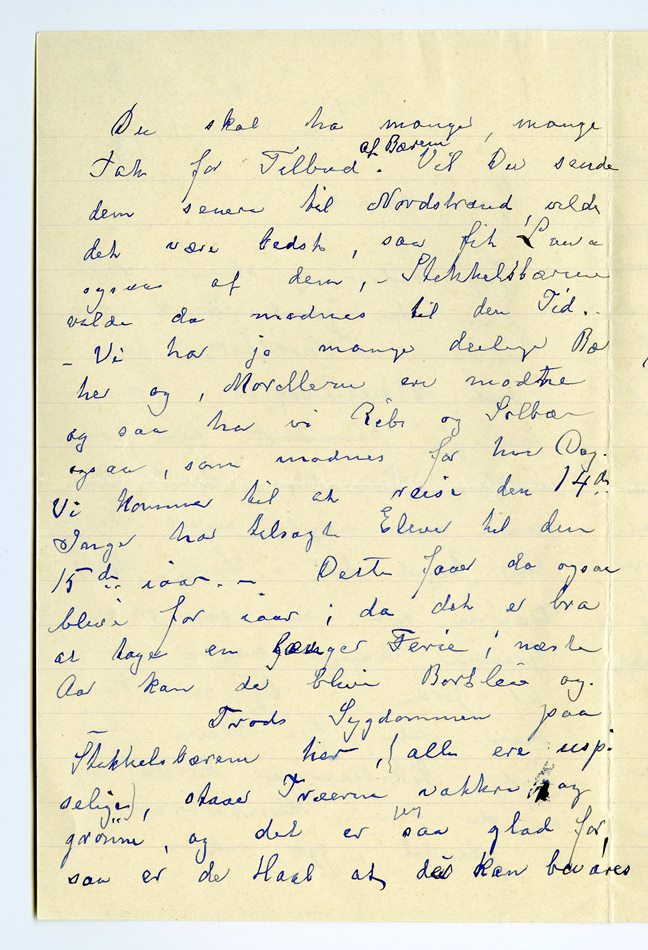 Du skal ha mange, mange
Tak for Tilbud af Bærene. Vil Du sende
dem senere til Nordstrand, vilde
det være bedst, saa fik
ogsaa af dem, - Stekkelsbærene
vilde da modnes til den Tid. -
- Vi har jo mange deilige Bær
her og, Morellerne ere modne
og saa har vi Ribs og Solbær
ogsaa, som modnes for hver Dag.
Vi kommer til at reise den 14de
Inga har tilsagte Elever til den
15de iaar. - Dette faar da ogsaa
blive for iaar; da det er bra
at tage en Ferie; næste
Aar kan de blive Borte og.
Trods Sygdommen paa
Stekkelsbærene her, (alle ere uspi-
selige), staar Træerne vakkre og
grønne, og det er jeg saa glad for,
saa er de Haab at, de kan bevares